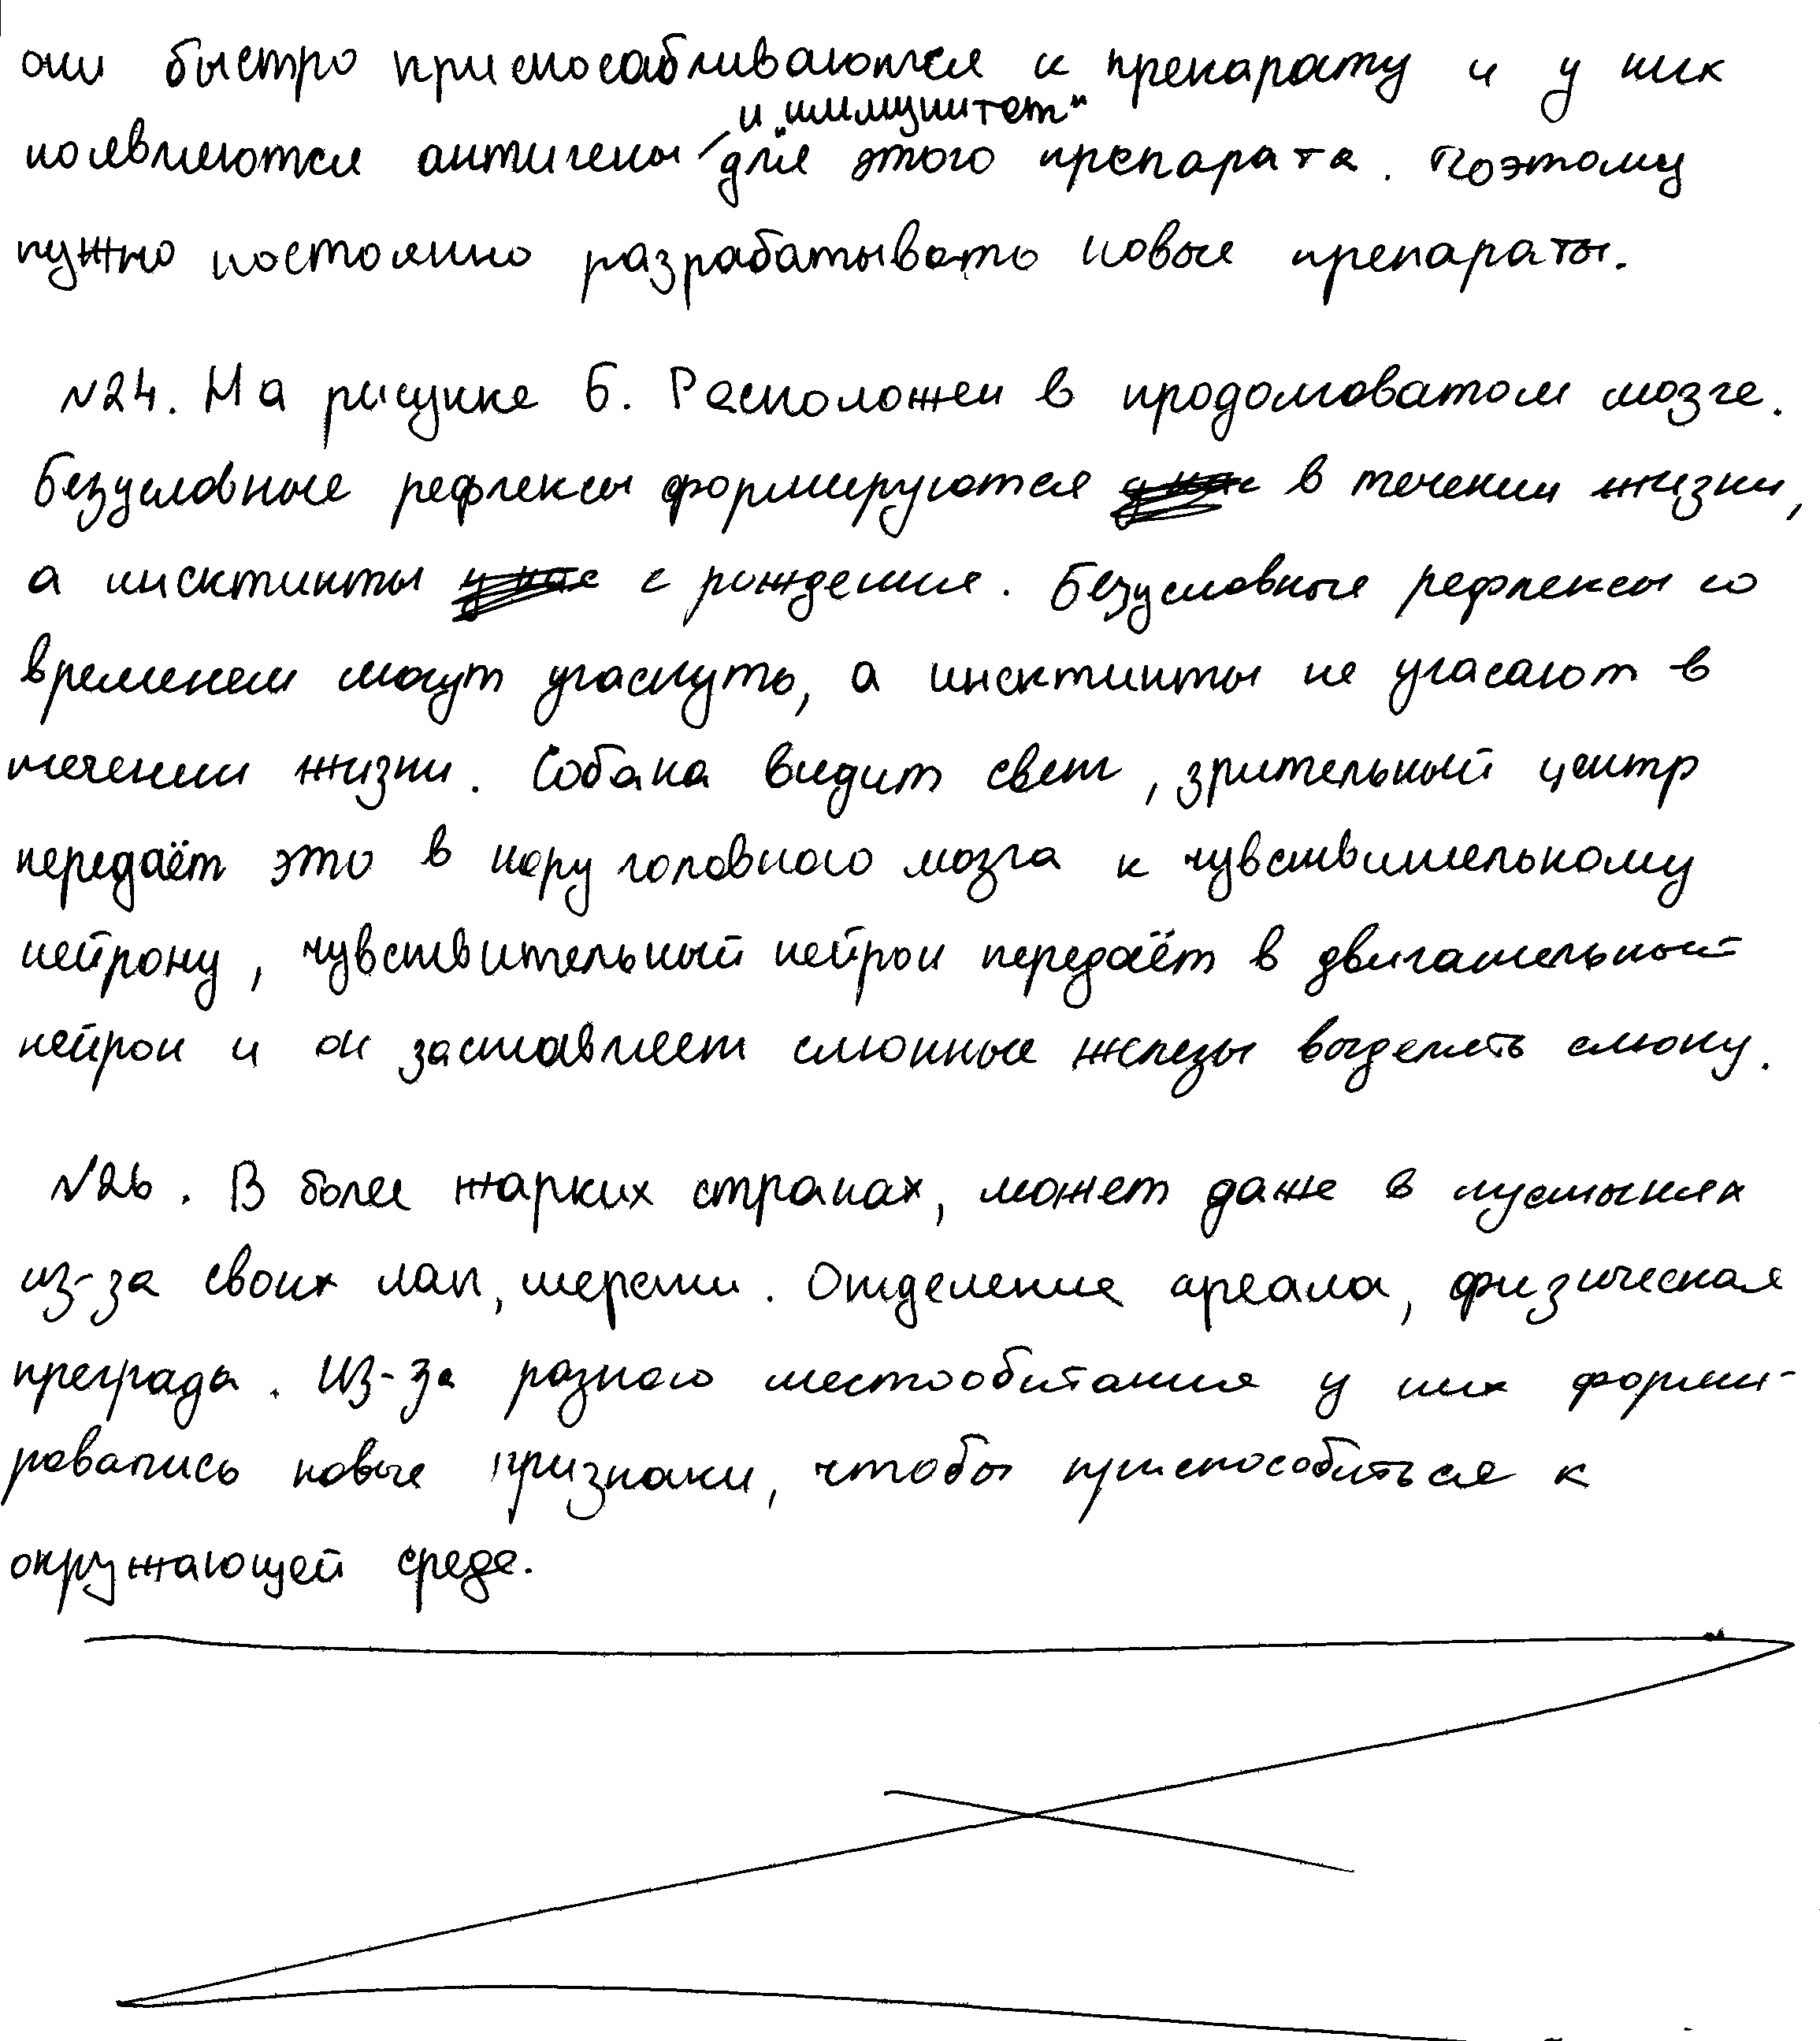 они быстро приспосабливаются к препарату и у них
и "иммунитет"
появляются антигены для этого препарата. Поэтому
нужно постоянно разрабатывать новые препараты.
№24. На рисунке Б. Расположен в продолговатом мозге.
Безусловные рефлексы формируются у нас в течении жизни,
а инсктинкты у нас с рождения. Безусловные рефлексы со
временем могут угаснуть, а инсктинкты не угасают в
течении жизни. Собака видит свет, зрительный центр
передаёт это в кору головного мозга к чувствительному
нейрону, чувствительный нейрон передаёт в двигательный
нейрон и он заставляет слюнные железы выделять слюну.
№26. В более жарких странах, может даже в пустынях
из-за своих лап, шерсти. Отделение ареала, физическая
преграда. Из-за разного местообитания у них форми-
ровались новые признаки, чтобы приспособиться к
окружающей среде.